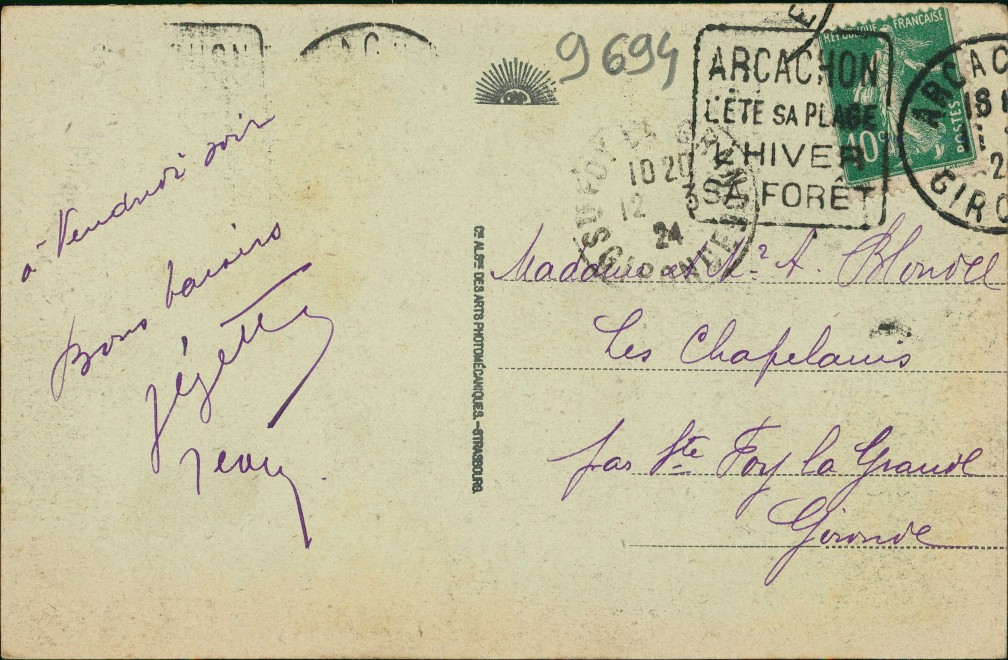 9694
ARCACHON
L'ÉTÉ SA PLAGE
L'HIVER
SA FORÊT
RÉPUBLIQUE FRANÇAISE
10c
POSTES
ARCAC
18
GIRO
STE FOY LA GR
10 20
12
3
24
GIRONDE
à Vendredi soir
Bons baisers
Zézette
Jean
Cie ALSne DES ARTS PHOTOMÉCANIQUES.-STRASBOURG
Madame et Mr A. Blondel
Les Chapelains
par Ste Foy la Grande
Gironde